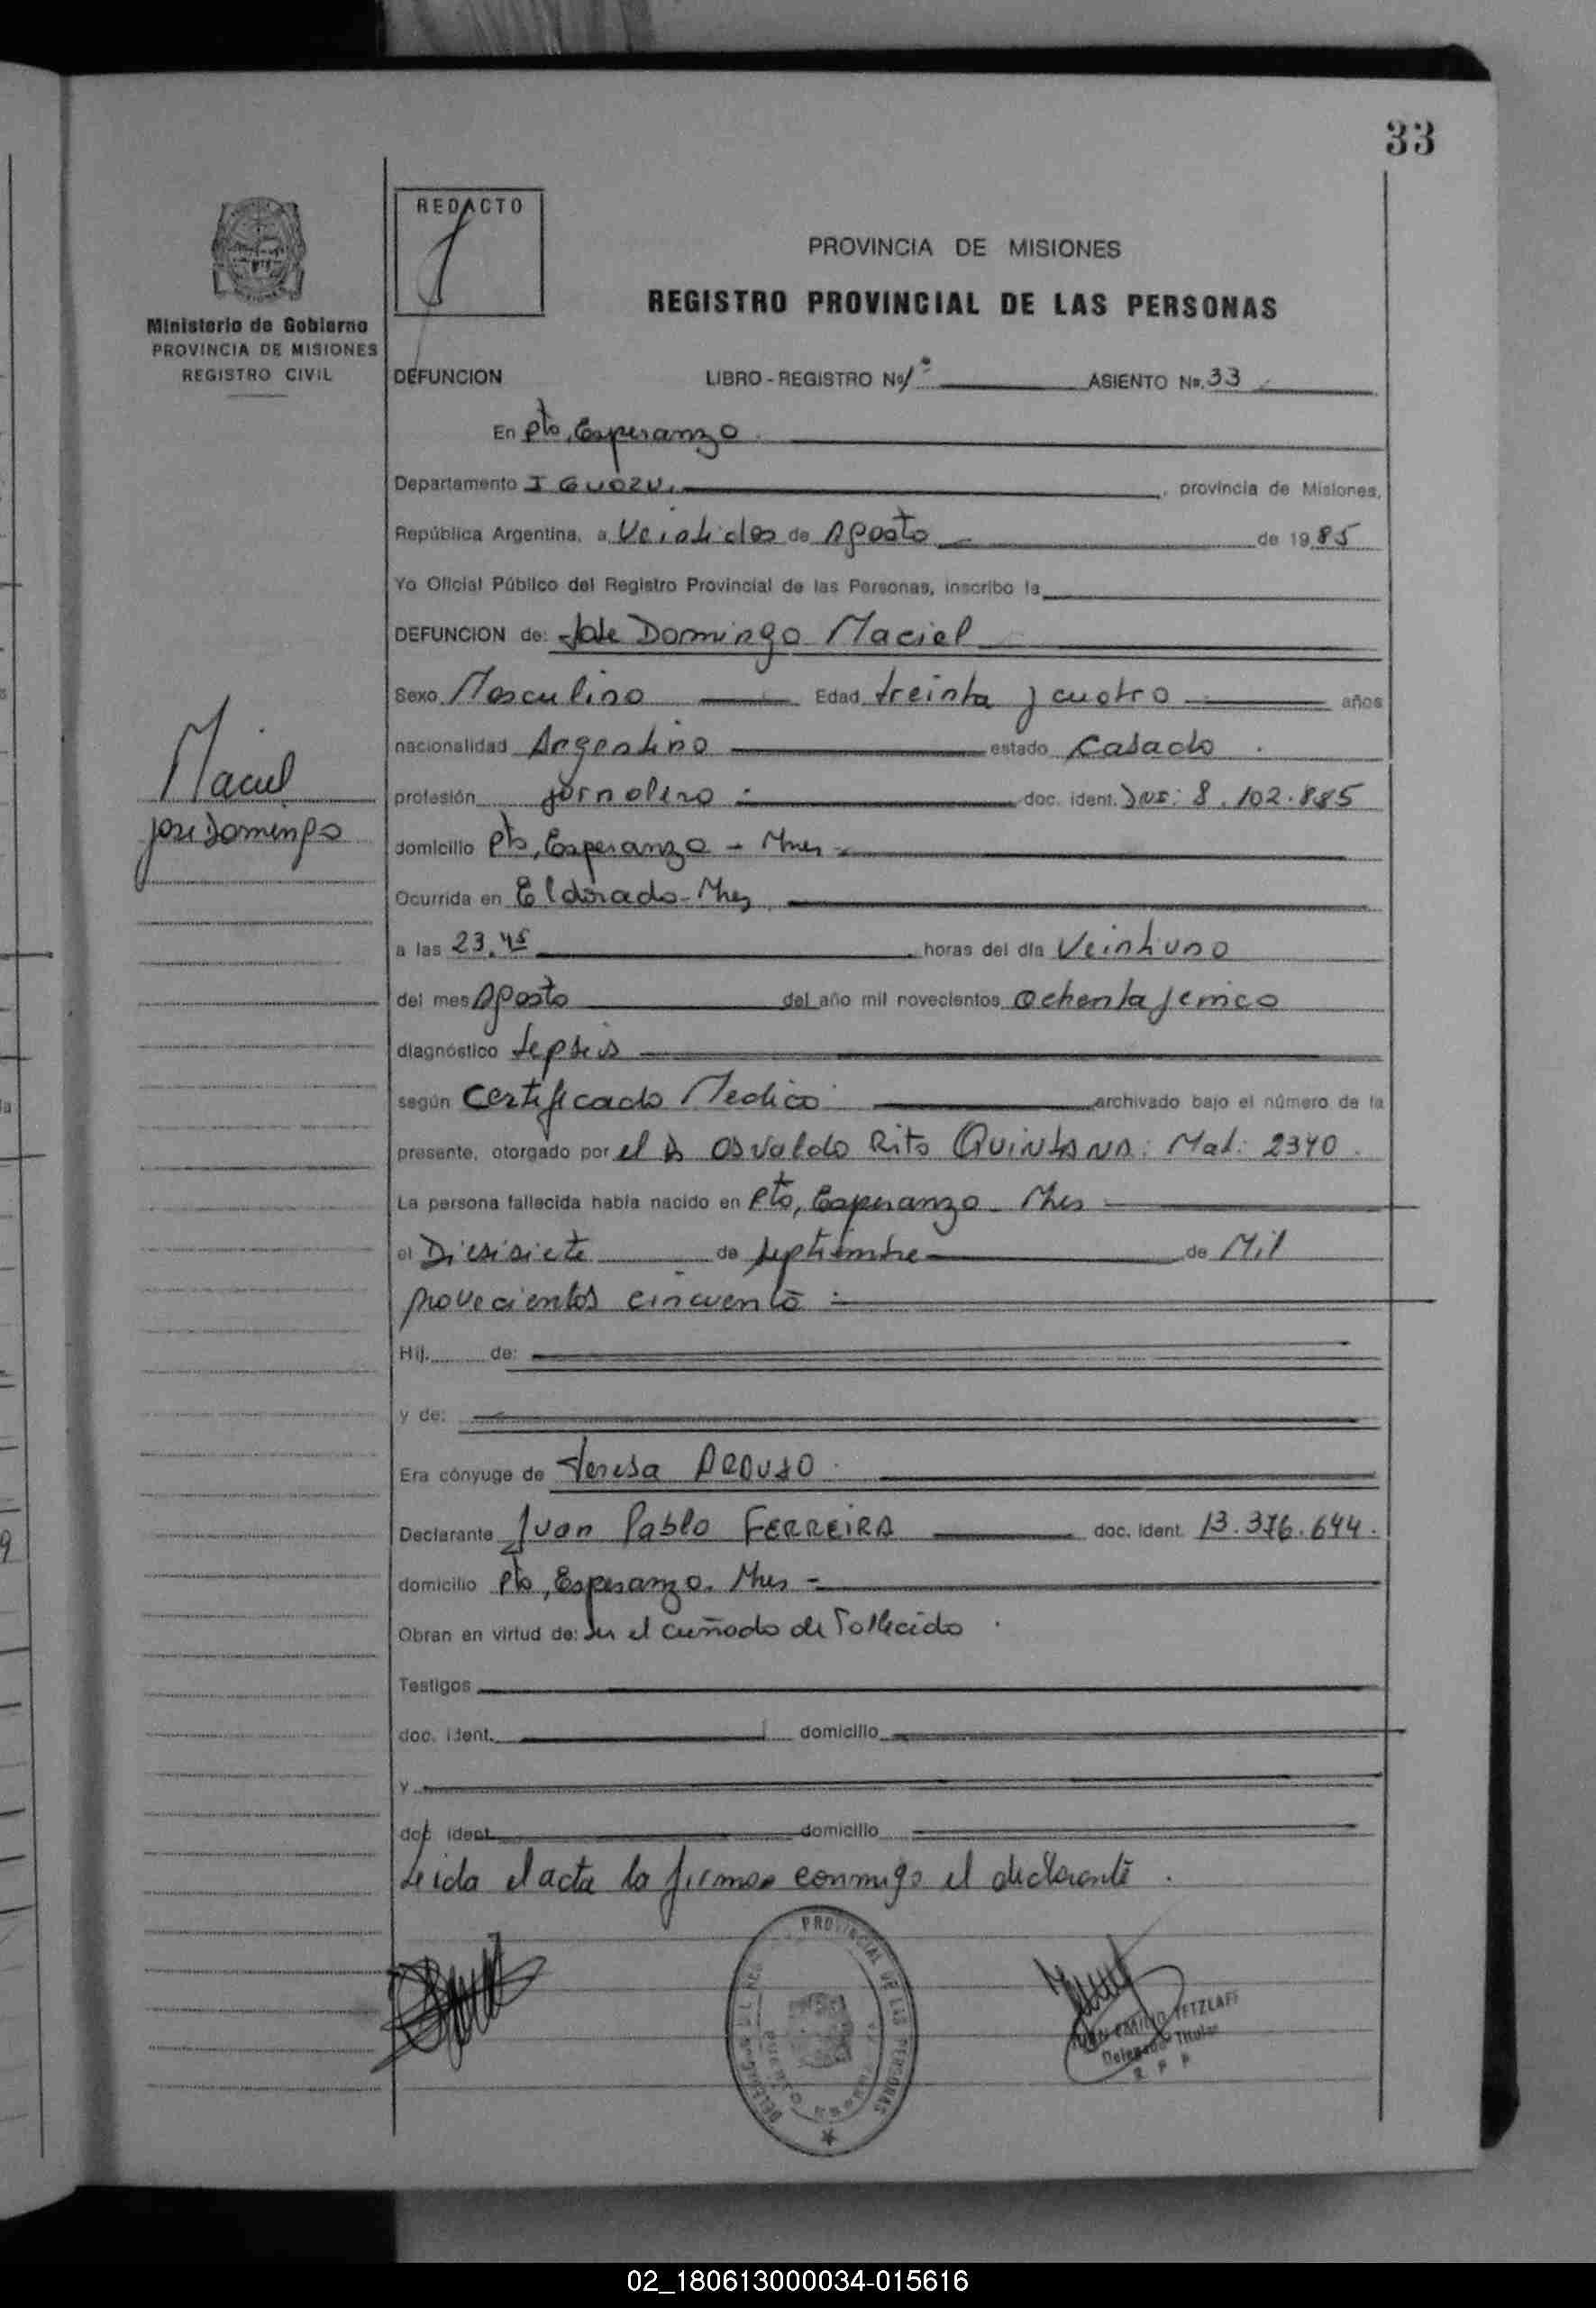 33
REDACTO
PROVINCIA DE MISIONES
REGISTRO PROVINCIAL DE LAS PERSONAS
Ministerio de Gobierno
PROVINCIA DE MISIONES
REGISTRO CIVIL
DEFUNCION LIBRO - REGISTRO Nº 1º ASIENTO Nº. 33
En Pto, Esperanza.
Departamento IGUAZU, provincia de Misiones,
República Argentina, a Veintidos de Agosto de 1985
Yo Oficial Público del Registro Provincial de las Personas, inscribo la
DEFUNCION de: Jose Domingo Maciel
Sexo Masculino Edad treinta y cuatro años
nacionalidad Argentino estado Casado.
Maciel
Jose Domingo
profesión jornalero doc. ident. DNI: 8.102.885
domicilio Pto, Esperanza - Mnes
Ocurrida en Eldorado - Mnes
a las 23,45 horas del día Veintiuno
del mes Agosto del año mil novecientos ochenta y cinco
diagnóstico Sepsis
según Certificado Medico archivado bajo el número de la
presente, otorgado por el Dr Osvaldo Rito QUINTANA: Mat: 2340.
La persona fallecida había nacido en Pto, Esperanza - Mnes
el Diesisiete de septiembre de Mil
novecientos cincuenta
Hij. de:
y de:
Era cónyuge de Teresa ARAUJO.
Declarante Juan Pablo FERREIRA doc. ident. 13.376.644.
domicilio Pto, Esperanza. Mnes -
Obran en virtud de: ser el cuñado de Fallecido.
Testigos
doc. ident. domicilio
y
doc. ident. domicilio
Leida el acta la firma conmigo el declarante.
PROVINCIAL DE LAS PERSONAS
TETZLAFF
Delegado Titular
R P P
02_180613000034-015616